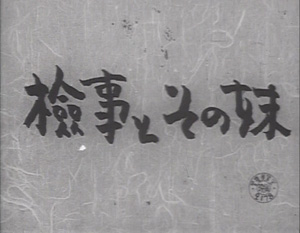 檢事とその妹